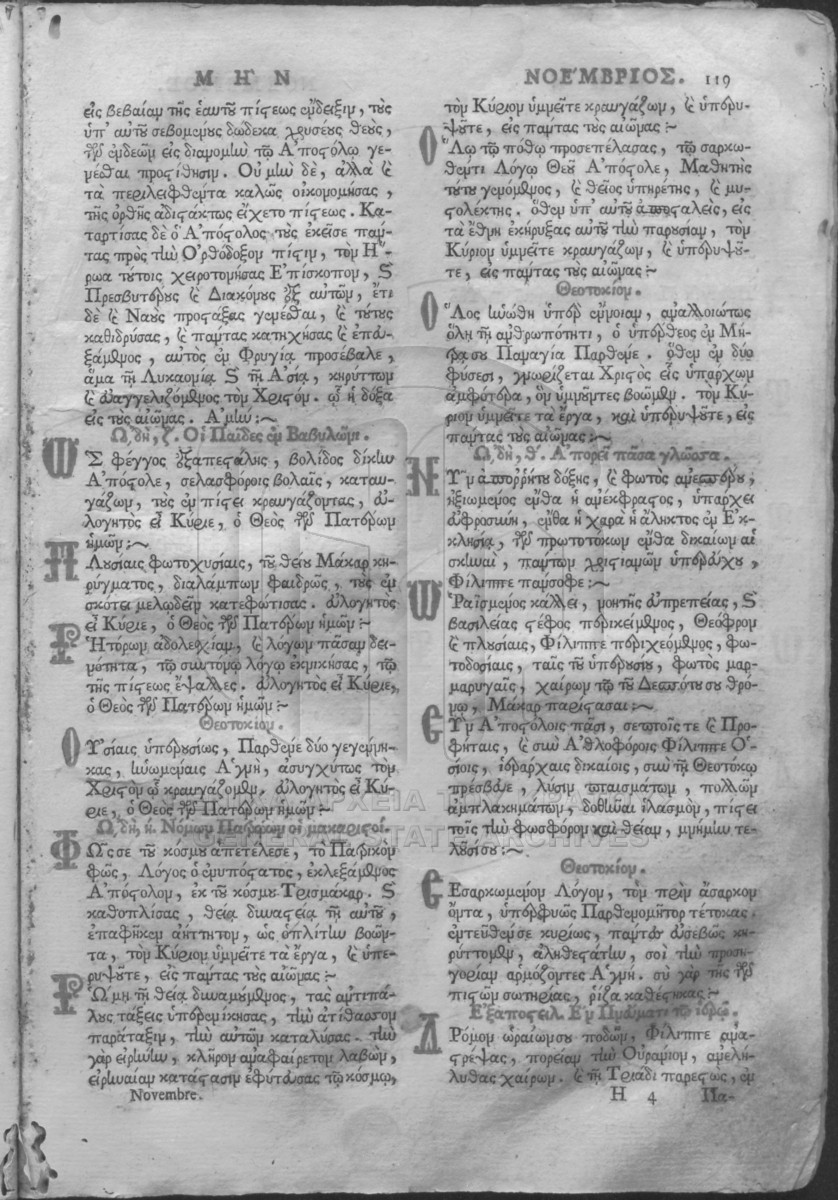 ΜΗ'Ν ΝΟΕ'ΜΒΡΙΟΣ. 119
εἰς βεβαίαν τῆς ἑαυτοῦ πίστεως ἔνδειξιν, τοὺς
ὑπ' αὐτοῦ σεβομένους δώδεκα χρυσέους θεοὺς,
τῶν ἐνδεῶν εἰς διανομὴν τῷ Α'ποστόλῳ γε-
νέσθαι προστίθησιν. Οὐ μὴν δὲ, ἀλλὰ καὶ
τὰ περιλειφθέντα καλῶς οἰκονομήσας,
τῆς ὀρθῆς ἀδιστάκτως εἴχετο πίστεως. Κα-
ταρτίσας δὲ ὁ Α'πόστολος τοὺς ἐκεῖσε πάν-
τας πρὸς τὴν Ο'ρθόδοξον πίστιν, τὸν Η῞-
ρωα τούτοις χειροτονήσας Ε'πίσκοπον, καὶ
Πρεσβυτέρους καὶ Διακόνους ἐξ αὐτῶν, ἔτι
δὲ καὶ Ναοὺς προστάξας γενέσθαι, καὶ τούτους
καθιδρύσας, καὶ πάντας κατηχήσας καὶ ἐπευ-
ξάμενος, αὐτὸς ἐν Φρυγίᾳ προσέβαλε,
ἅμα τῇ Λυκαονίᾳ καὶ τῇ Α'σίᾳ, κηρύττων
καὶ εὐαγγελιζόμενος τὸν Χριστόν. ᾧ ἡ δόξα
εἰς τοὺς αἰῶνας. Α'μήν :~
Ω'δὴ, ζ. Οἱ Παῖδες ἐν Βαβυλῶνι.
ΩΣ φέγγος ἐξαπεστάλης, βολίδος δίκην
Α'πόστολε, σελασφόροις βολαῖς, καταυ-
γάζων, τοὺς ἐν πίστει κραυγάζοντας, εὐ-
λογητὸς εἶ Κύριε, ὁ Θεὸς τῶν Πατέρων
ἡμῶν :~
ΠΛουσίαις φωτοχυσίαις, τοῦ θείου Μάκαρ κη-
ρύγματος, διαλάμπων φαιδρῶς, τοὺς ἐν
σκότει μελῳδεῖν κατεφώτισας. εὐλογητὸς
εἶ Κύριε, ὁ Θεὸς τῶν Πατέρων ἡμῶν :~
ΡΗ'τόρων ἀδολεσχίαν, καὶ λόγων πᾶσαν δει-
νότητα, τῷ συντόμῳ λόγῳ ἐκνικήσας, τῷ
τῆς πίστεως ἔψαλλες. εὐλογητὸς εἶ Κύριε,
ὁ Θεὸς τῶν Πατέρων ἡμῶν :~
Θεοτοκίον.
ΟΥ'σίαις ὑπερουσίως, Παρθένε δύο γεγέννη-
κας, ἡνωμέναις Α'γνὴ, ἀσυγχύτως τὸν
Χριστὸν ᾧ κραυγάζομεν. εὐλογητὸς εἶ Κύ-
ριε, ὁ Θεὸς τῶν Πατέρων ἡμῶν :~
Ω'δὴ, η. Νόμων Πατρῴων οἱ μακαριστοί.
ΦΩ῀ς σε τοῦ κόσμου ἀπετέλεσε, τὸ Πατρικὸν
φῶς, Λόγος ὁ ἐνυπόστατος, ἐκλεξάμενος
Α'πόστολον, ἐκ τοῦ κόσμου Τρισμάκαρ. καὶ
καθοπλίσας, θείᾳ δυναστείᾳ τῇ αὐτοῦ,
ἐπαφῆκεν ἀήττητον, ὡς ὁπλίτην βοῶν-
τα, τὸν Κύριον ὑμνεῖτε τὰ ἔργα, καὶ ὑπε-
ρυψοῦτε, εἰς πάντας τοὺς αἰῶνας :~
ΡΩ'μῃ τῇ θείᾳ δυναμούμενος, τὰς ἀντιπά-
λους τάξεις ὑπερενίκησας, τὴν ἀτίθασσον
παράταξιν, τὴν αὐτῶν καταλύσας. τὴν
γὰρ εἰρήνην, κλῆρον ἀναφαίρετον λαβὼν,
εἰρηναίαν κατάστασιν ἐφύτευσας τῷ κόσμῳ,
Novembre.
τὸν Κύριον ὑμνεῖτε κραυγάζων, καὶ ὑπερυ-
ψοῦτε, εἰς πάντας τοὺς αἰῶνας :~
ΟΛῳ τῷ πόθῳ προσεπέλασας, τῷ σαρκω-
θέντι Λόγῳ Θεοῦ Α'πόστολε, Μαθητὴς
τούτου γενόμενος, καὶ θεῖος ὑπηρέτης, καὶ μυ-
στολέκτης. ὅθεν ὑπ' αὐτοῦ ἀποσταλεὶς, εἰς
τὰ ἔθνη ἐκήρυξας αὐτοῦ τὴν παρουσίαν, τὸν
Κύριον ὑμνεῖτε κραυγάζων, καὶ ὑπερυψοῦ-
τε, εἰς πάντας τοὺς αἰῶνας :~
Θεοτοκίον.
ΟΛος ἡνώθη ὑπὲρ ἔννοιαν, ἀναλλοιώτως
ὅλῃ τῇ ἀνθρωπότητι, ὁ ὑπέρθεος ἐν Μή-
τρᾳ σου Παναγία Παρθένε. ὅθεν ἐν δύο
φύσεσι, γνωρίζεται Χριστὸς εἷς ὑπάρχων
ἀμφότερα, ὃν ὑμνοῦντες βοῶμεν. τὸν Κύ-
ριον ὑμνεῖτε τὰ ἔργα, καὶ ὑπερυψοῦτε, εἰς
πάντας τοὺς αἰῶνας :~
Ω'δὴ, θ. Α'πορεῖ πᾶσα γλῶσσα.
ΝΥ῀ν ἀπορρήτου δόξης, καὶ φωτὸς ἀμεσσου,
ἠξιωμένος ἔνθα ἡ ἀνέκφραστος, ὑπάρχει
εὐφροσύνη, ἔνθα ἡ χαρὰ ἡ ἄληκτος ἐν Ε'κ-
κλησίᾳ, τῶν πρωτοτόκων ἔνθα δικαίων αἱ
σκηναὶ, πάντων χριστιανῶν ὑπερεύχου,
Φίλιππε πάνσοφε :~
ΩΡαϊσμένος κάλλει, μονῆς εὐπρεπείας, καὶ
βασιλείας στέφος περικείμενος, Θεόφρον
καὶ πλουσίαις, Φίλιππε περιχεόμενος, φω-
τοδοσίαις, ταῖς τοῦ ὑπερουσίου, φωτὸς μαρ-
μαρυγαῖς, χαίρων τῷ τοῦ Δεσπότου σου θρό-
νῳ, Μάκαρ παρίστασαι :~
ΣΥ`ν Α'ποστόλοις πᾶσι, σεπτοῖς τε καὶ Προ-
φήταις, καὶ σὺν Α'θλοφόροις Φίλιππε Ο῾-
σίοις, ἱεράρχαις δικαίοις, σὺν τῇ Θεοτόκῳ
πρέσβευε, λύσιν πταισμάτων, πολλῶν
ἀμπλακημάτων, δοθῆναι ἱλασμὸν, πίστει
τοῖς τὴν φωσφόρον καὶ θείαν, μνήμην τε-
λοῦσί σου :~
Θεοτοκίον.
ΣΕσαρκωμένον Λόγον, τὸν πρὶν ἄσαρκον
ὄντα, ὑπερφυῶς Παρθενομῆτορ τέτοκας.
ἐντεῦθέν σε κυρίως, πάντων εὐσεβῶς κη-
ρύττομεν, ἀληθεστάτην, σοὶ τὴν προση-
γορίαν ἁρμόζοντες Α'γνή. σὺ γὰρ τῆς τῶν
πιστῶν σωτηρίας, ῥίζα καθέστηκας :~
Ε'ξαποστειλ. Ε'ν Πνεύματι τῷ ἱερῷ.
ΔΡόμον ὡραίων σου ποδῶν, Φίλιππε ἀνα-
τρέψας, πορείαν τὴν Οὐράνιον, ἀνελή-
λυθας χαίρων. καὶ τῇ Τριάδι παρεστὼς, ἐν
Η 4 Πα-
GENERAL STATE ARCHIVES